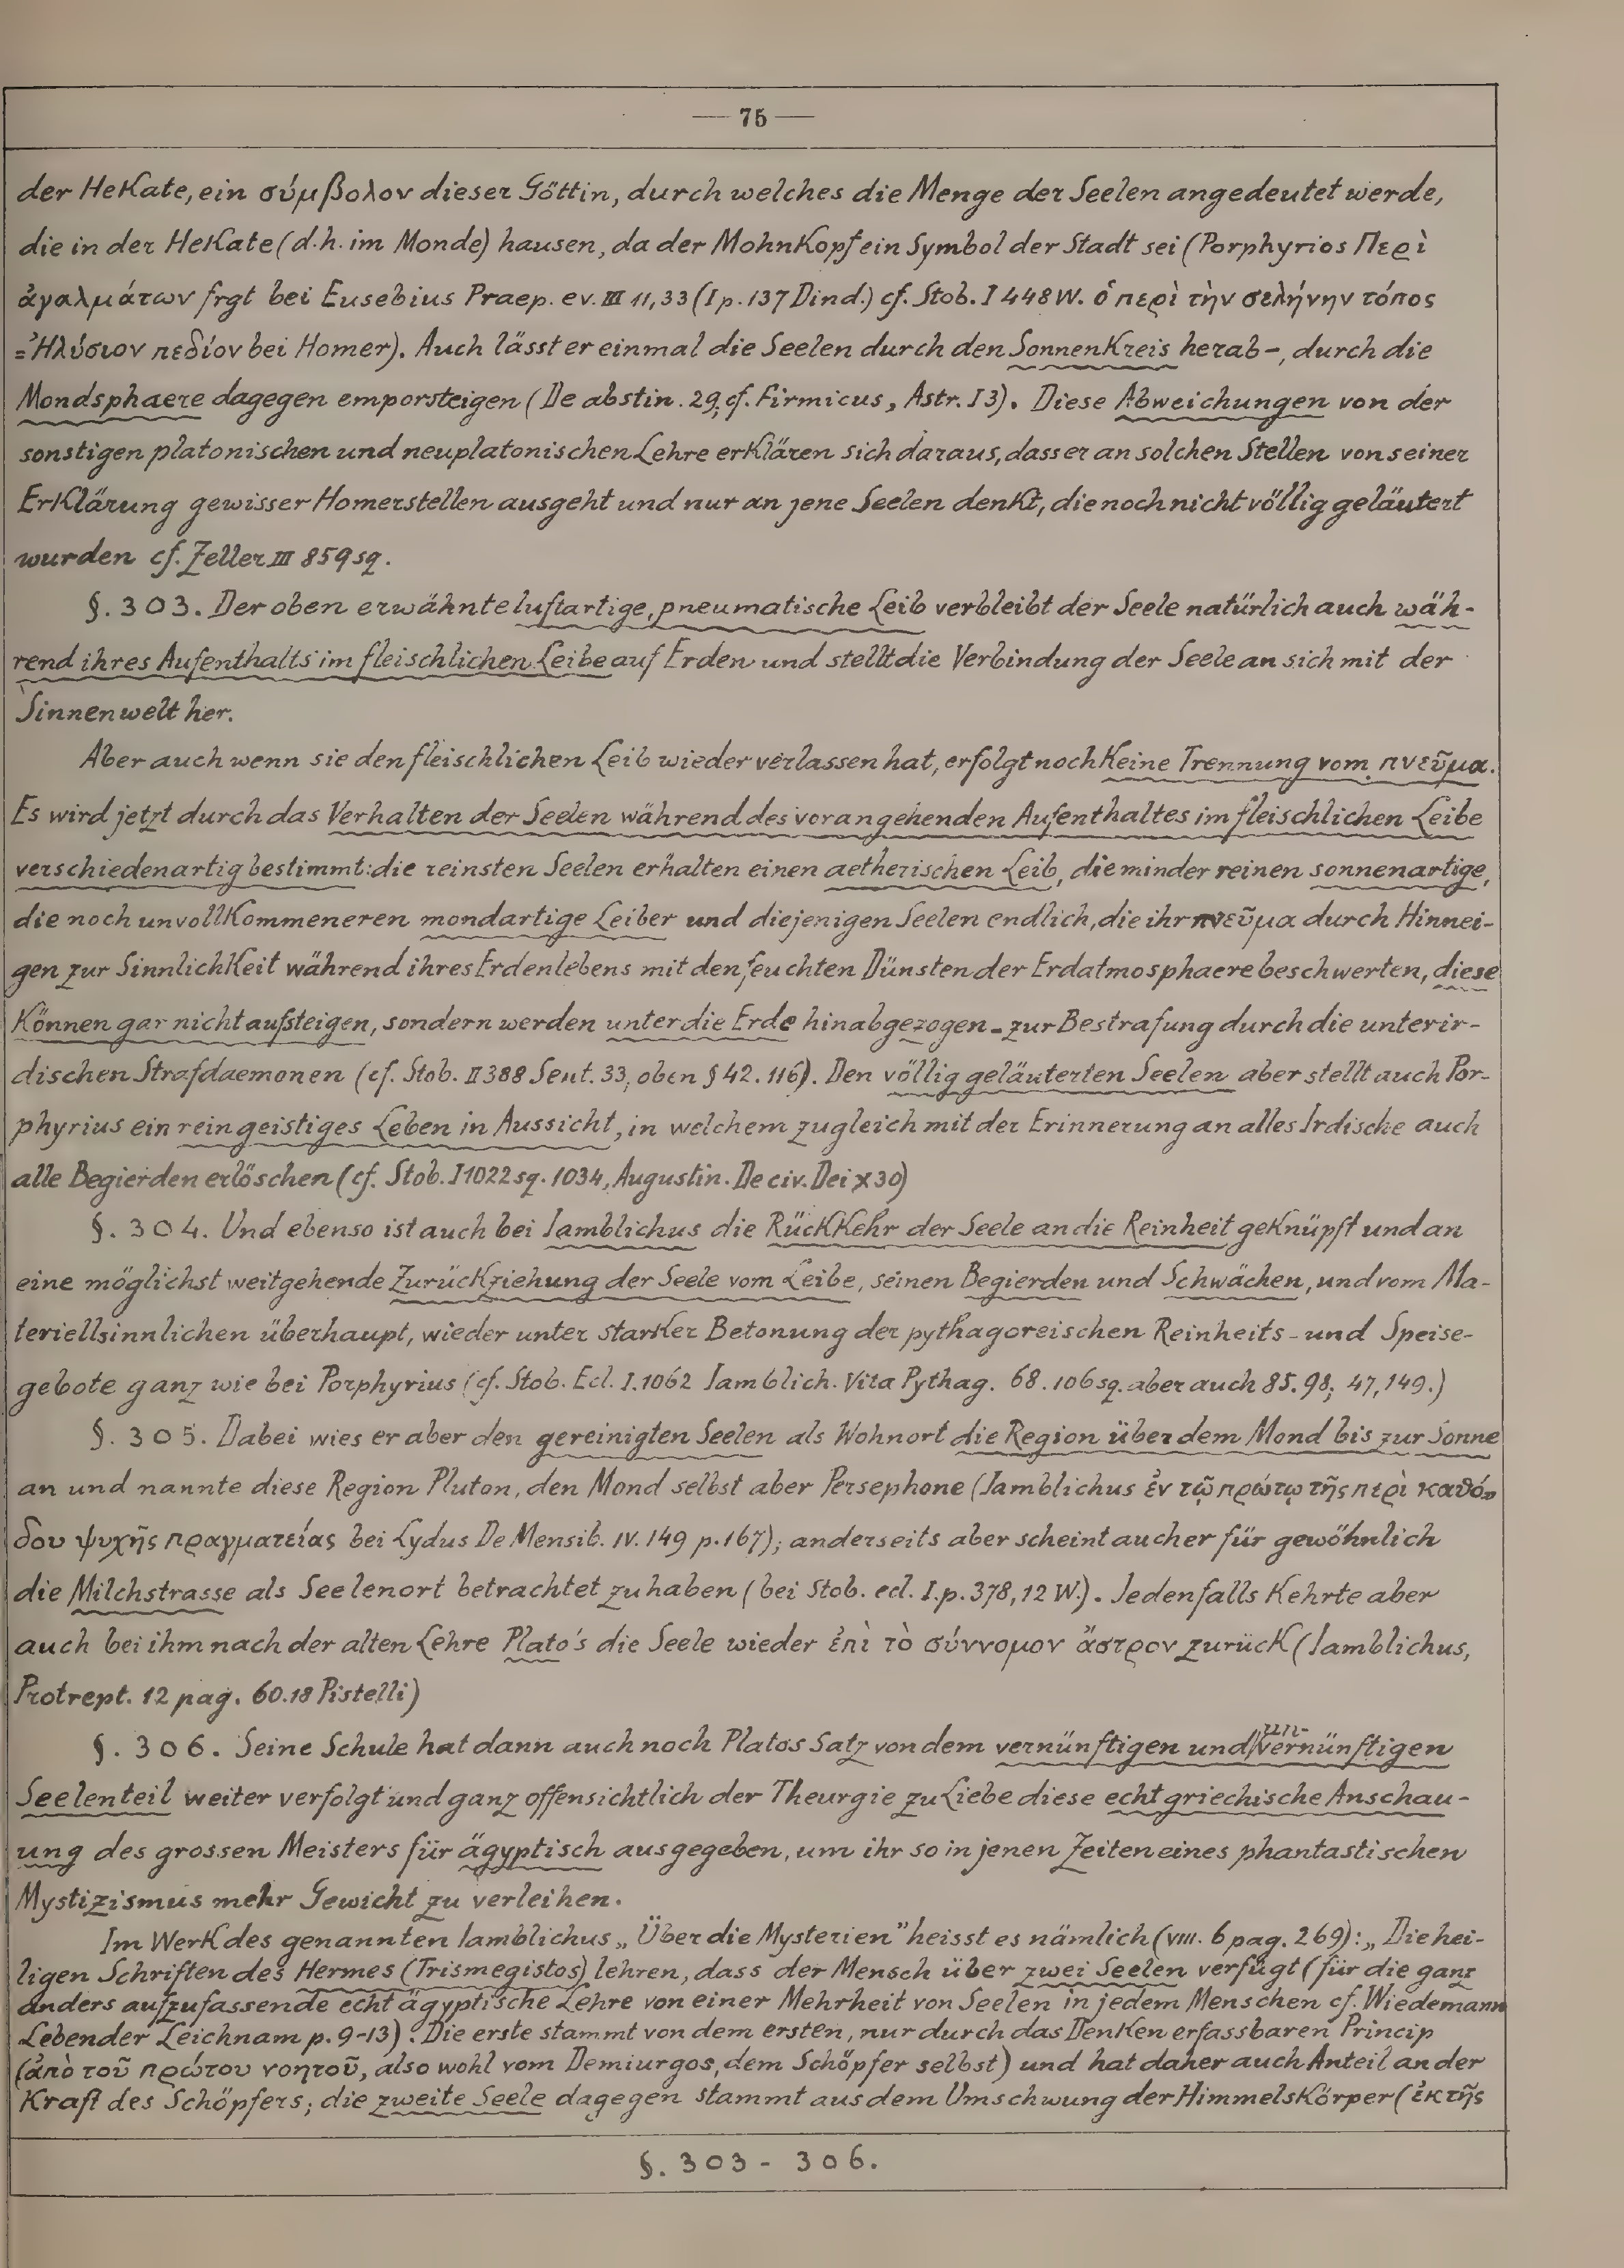 — 75 —
der Hekate, ein σύμβολον dieser Göttin, durch welches die Menge der Seelen angedeutet werde,
die in der Hekate (d.h. im Monde) hausen, da der Mohnkopf ein Symbol der Stadt sei (Porphyrios Περὶ
ἀγαλμάτων frgt bei Eusebius Praep. ev. III 11,33 (I p. 137 Dind.) cf. Stob. I 448 W. ὁ περὶ τὴν σελήνην τόπος
= Ἠλύσιον πεδίον bei Homer). Auch lässt er einmal die Seelen durch den Sonnenkreis herab-, durch die
Mondsphaere dagegen emporsteigen (De abstin. 29, cf. Firmicus, Astr. I 3). Diese Abweichungen von der
sonstigen platonischen und neuplatonischen Lehre erklären sich daraus, dass er an solchen Stellen von seiner
Erklärung gewisser Homerstellen ausgeht und nur an jene Seelen denkt, die noch nicht völlig geläutert
wurden cf. Zeller III 859 sq.
§. 303. Der oben erwähnte luftartige, pneumatische Leib verbleibt der Seele natürlich auch wäh-
rend ihres Aufenthalts im fleischlichen Leibe auf Erden und stellt die Verbindung der Seele an sich mit der
Sinnenwelt her.
Aber auch wenn sie den fleischlichen Leib wieder verlassen hat, erfolgt noch keine Trennung vom πνεῦμα.
Es wird jetzt durch das Verhalten der Seelen während des vorangehenden Aufenthaltes im fleischlichen Leibe
verschiedenartig bestimmt: die reinsten Seelen erhalten einen aetherischen Leib, die minder reinen sonnenartige,
die noch unvollkommeneren mondartige Leiber und diejenigen Seelen endlich, die ihr πνεῦμα durch Hinnei-
gen zur Sinnlichkeit während ihres Erdenlebens mit den feuchten Dünsten der Erdatmosphaere beschwerten, diese
können gar nicht aufsteigen, sondern werden unter die Erde hinabgezogen - zur Bestrafung durch die unterir-
dischen Strafdaemonen (cf. Stob. II 388 Sent. 33, oben § 42. 116). Den völlig geläuterten Seelen aber stellt auch Por-
phyrius ein rein geistiges Leben in Aussicht, in welchem zugleich mit der Erinnerung an alles Irdische auch
alle Begierden erlöschen (cf. Stob. I 1022 sq. 1034, Augustin. De civ. Dei X 30)
§. 304. Und ebenso ist auch bei Iamblichus die Rückkehr der Seele an die Reinheit geknüpft und an
eine möglichst weitgehende Zurückziehung der Seele vom Leibe, seinen Begierden und Schwächen, und vom Ma-
teriellsinnlichen überhaupt, wieder unter starker Betonung der pythagoreischen Reinheits- und Speise-
gebote ganz wie bei Porphyrius (cf. Stob. Ecl. I. 1062 Iamblich. Vita Pythag. 68. 106 sq. aber auch 85. 98; 47, 149.)
§. 305. Dabei wies er aber den gereinigten Seelen als Wohnort die Region über dem Mond bis zur Sonne
an und nannte diese Region Pluton, den Mond selbst aber Persephone (Iamblichus ἐν τῷ πρώτῳ τῆς περὶ καθό-
δου ψυχῆς πραγματείας bei Lydus De Mensib. IV. 149 p. 167); anderseits aber scheint auch er für gewöhnlich
die Milchstrasse als Seelenort betrachtet zu haben (bei Stob. ecl. I. p. 378, 12 W.). Jedenfalls kehrte aber
auch bei ihm nach der alten Lehre Plato's die Seele wieder ἐπὶ τὸ σύννομον ἄστρον zurück (Iamblichus,
Protrept. 12 pag. 60.18 Pistelli)
§. 306. Seine Schule hat dann auch noch Platos Satz von dem vernünftigen und unvernünftigen
Seelenteil weiter verfolgt und ganz offensichtlich der Theurgie zu Liebe diese echt griechische Anschau-
ung des grossen Meisters für ägyptisch ausgegeben, um ihr so in jenen Zeiten eines phantastischen
Mystizismus mehr Gewicht zu verleihen.
Im Werk des genannten Iamblichus „Über die Mysterien" heisst es nämlich (VIII. 6 pag. 269): „Die hei-
ligen Schriften des Hermes (Trismegistos) lehren, dass der Mensch über zwei Seelen verfügt (für die ganz
anders aufzufassende echt ägyptische Lehre von einer Mehrheit von Seelen in jedem Menschen cf. Wiedemann
Lebender Leichnam p. 9-13). Die erste stammt von dem ersten, nur durch das Denken erfassbaren Princip
(ἀπὸ τοῦ πρώτου νοητοῦ, also wohl vom Demiurgos, dem Schöpfer selbst) und hat daher auch Anteil an der
Kraft des Schöpfers; die zweite Seele dagegen stammt aus dem Umschwung der Himmelskörper (ἐκ τῆς
§. 303 - 306.